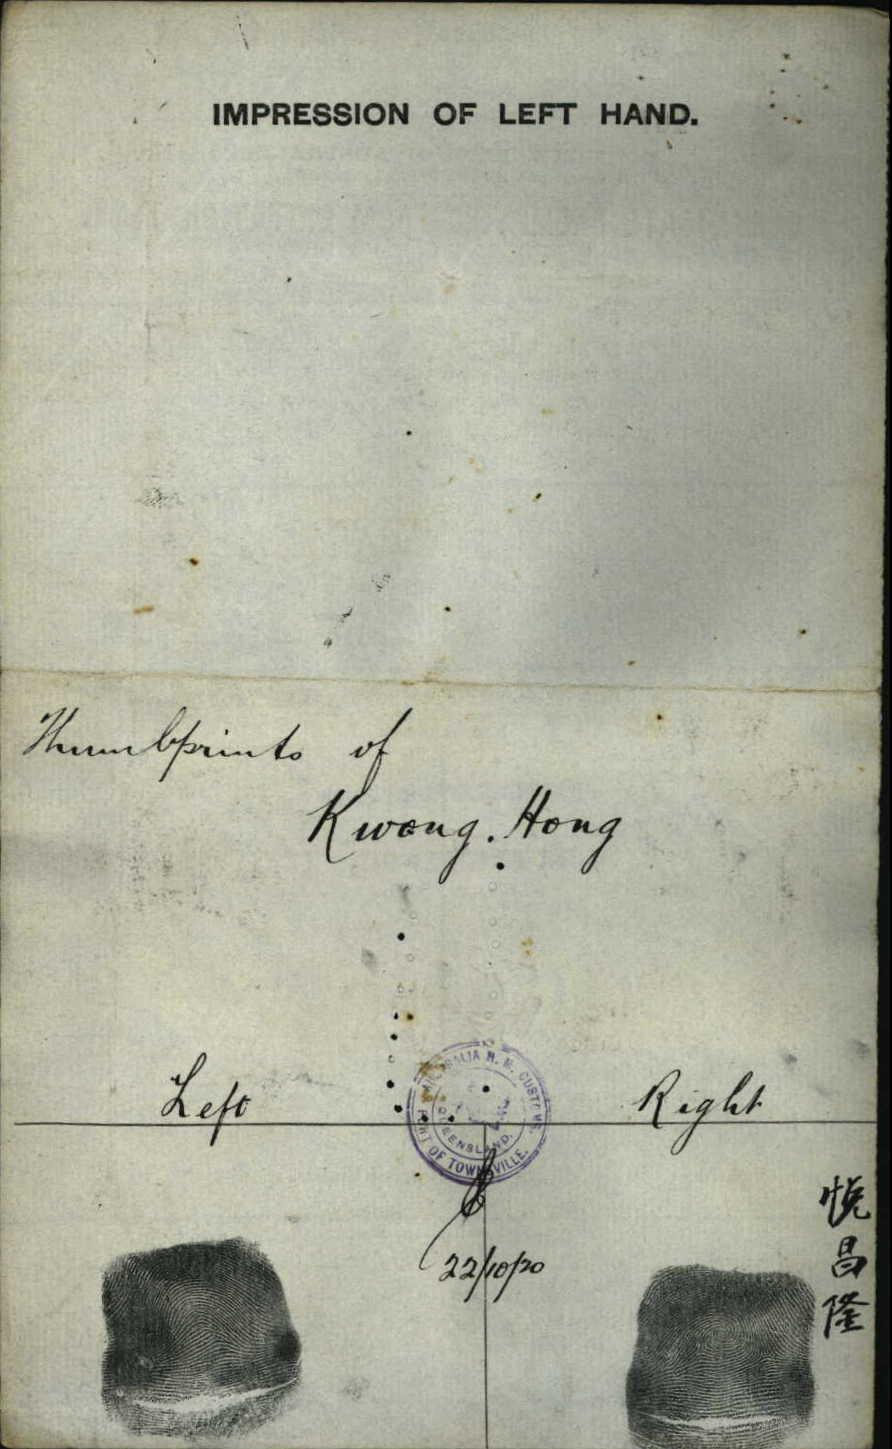 IMPRESSION OF LEFT HAND.
Thumbprints of
Kwong. Hong
Left
Right
AUSTRALIA H. M. CUSTOMS.
QUEENSLAND.
PORT OF TOWNSVILLE.
22/10/20
悅
昌
隆